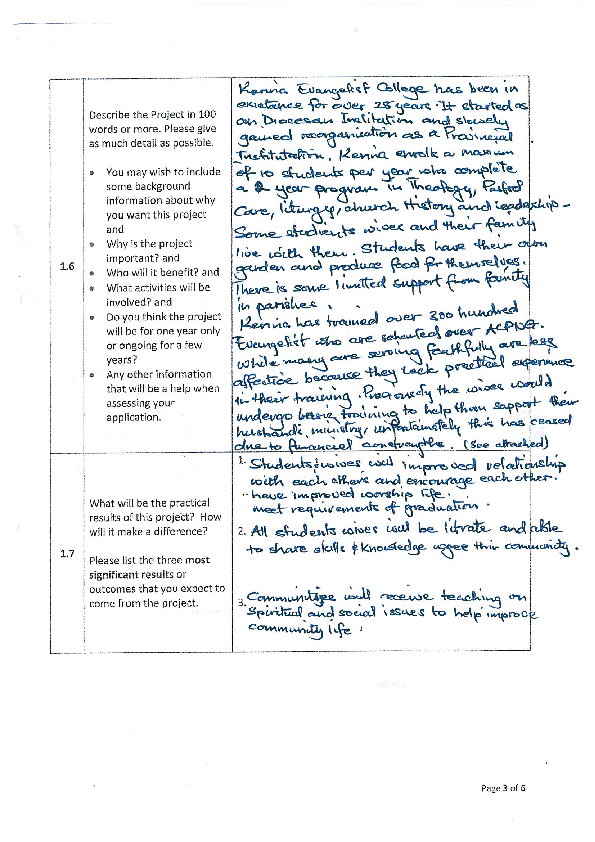 1.6
Describe the Project in 100
words or more. Please give
as much detail as possible.
• You may wish to include
some background
information about why
you want this project
and
• Why is the project
important? and
• Who will it benefit? and
• What activities will be
involved? and
• Do you think the project
will be for one year only
or ongoing for a few
years?
• Any other information
that will be a help when
assessing your
application.
Kerina Evangelist College has been in
existence for over 25 years. It started as
an Diocesan Institution and slowly
gained reorganisation as a Provincial
Institution. Kerina enrolk a maximum
of 10 students per year who complete
a 2 year program in Theology, Pastoral
Care, liturgy, church History and leadership -
Some students wives and their family
live with them. Students have their own
garden and produce food for themselves.
There is some limited support from family
in parishes.
Kerina has trained over 300 hundred
Evangelist who are scheduled over ACPNG.
While many are serving faithfully are less
affective because they lack practical experience
in their training. Previously the wives would
undergo being training to help them support their
husbands, ministry, unfortunately this has ceased
due to financial constraughts. (See attached)
1.7
What will be the practical
results of this project? How
will it make a difference?
Please list the three most
significant results or
outcomes that you expect to
come from the project.
1. Students; wives will improved relationship
with each others and encourage each other.
- have improved worship life.
meet requirements of graduation.
2. All students wives will be litrate and able
to share skills & knowledge their community.
3. Communities will receive teaching on
Spiritual and social issues to help improve
community life.
Page 3 of 6